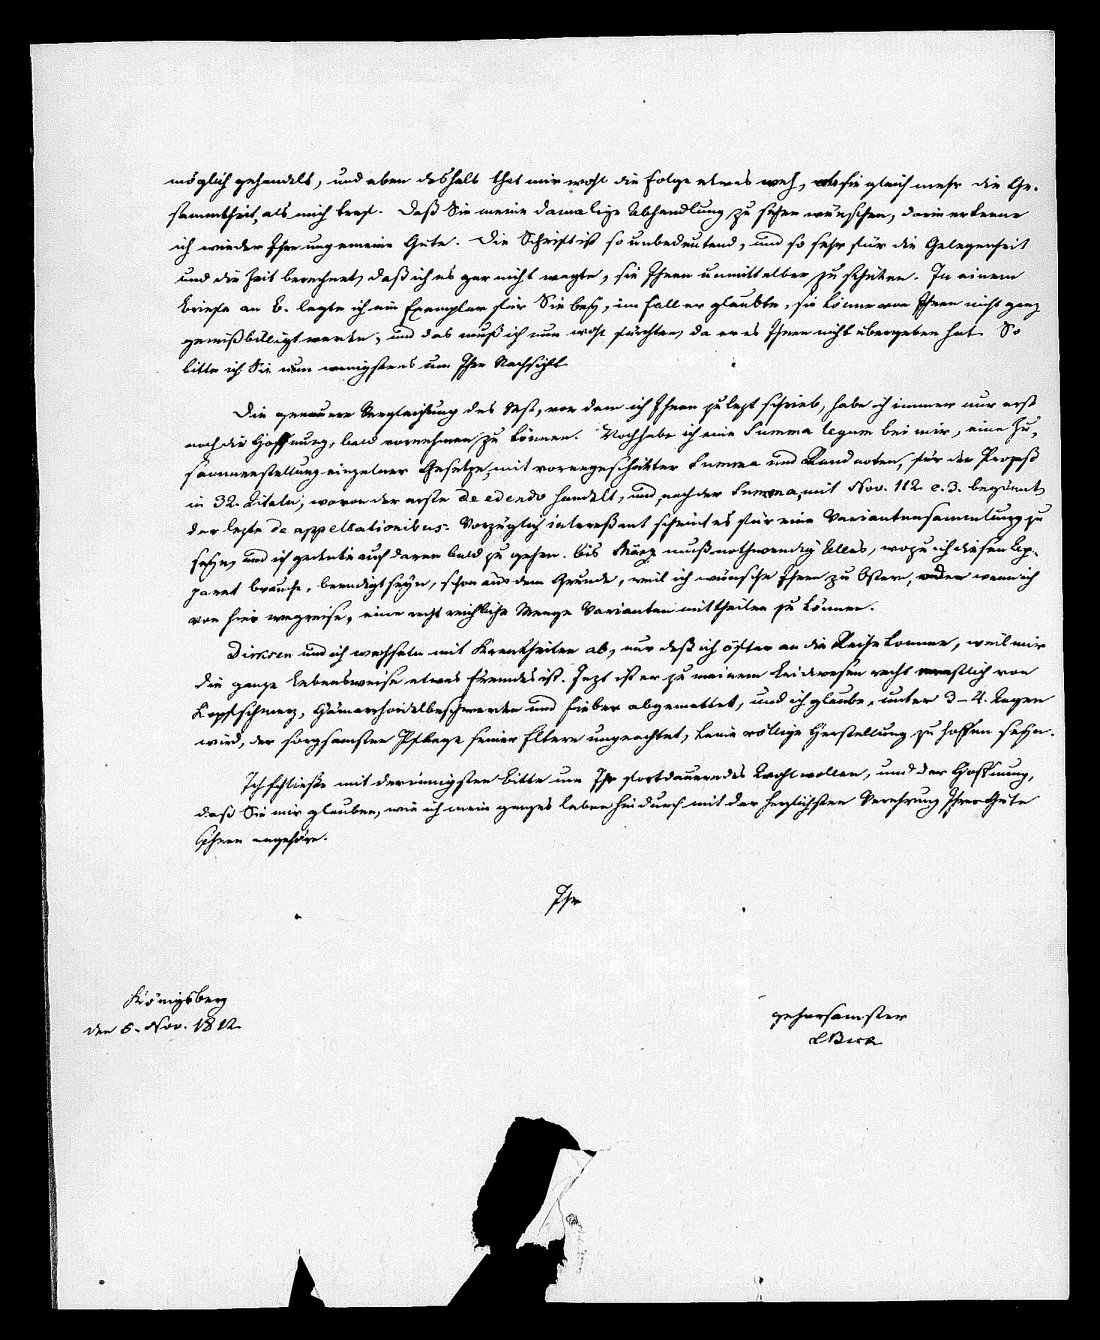 möglich gehandelt, und eben deshalb that mir wohl die Folge etwas weh, ob sie gleich mehr die Ge-
sammtheit, als mich trift. Daß Sie meine damalige Abhandlung zu sehen wünschen, darin erkenne
ich wieder Ihre ungemeine Güte. Die Schrift ist so unbedeutend, und so sehr für die Gelegenheit
und die Zeit berechnet, daß ich es gar nicht wagte, sie Ihnen unmittelbar zu schicken. In einem
Briefe an B. legte ich ein Exemplar für Sie bey, im Fall er glaubte, sie könne von Ihnen nicht ganz
gemißbilligt werden, und das muß ich nun wohl fürchten, da er es Ihnen nicht übergeben hat. So
bitte ich Sie nun wenigstens um Ihre Nachsicht.
Die genauere Vergleichung des Mst, von dem ich Ihnen zulezt schrieb, habe ich immer nur erst
noch die Hoffnung, bald vornehmen zu können. Noch habe ich eine Summa legum bei mir, eine Zu-
sammenstellung einzelner Gesetze, mit vorangeschickter Summa und Randnoten, für den Prozeß
in 32. Titeln, wovon der erste de edendo handelt, und, nach der Summa, mit Nov. 112 c. 3. beginnt,
der lezte de appellationibus. Vorzüglich interessant scheint es für eine Variantensammlung zu
seyn, und ich gedenke auch daran bald zu gehen. Bis März muß nothwendig Alles, wozu ich diesen Ap-
parat brauche, beendigt seyn, schon aus dem Grunde, weil ich wünsche Ihnen zu Ostern, oder wenn ich
von hier wegreise, eine recht reichliche Menge Varianten mittheilen zu können.
Dirksen und ich wechseln mit Krankheiten ab, nur daß ich öfter an die Reihe komme, weil mir
die ganze Lebensweise etwas Fremdes ist. Jezt ist er zu meinem Leidwesen recht ernstlich von
Kopfschmerz, Hämorrhoidalbeschwerden und Fieber abgemattet, und ich glaube, unter 3–4 Tagen
wird, der sorgsamsten Pflege seiner Eltern ungeachtet, keine völlige Herstellung zu hoffen seyn.
Ich schließe mit der innigsten Bitte um Ihr fortdauerndes Wohlwollen, und der Hoffnung,
daß Sie mir glauben, wie ich mein ganzes Leben hindurch mit der herzlichsten Verehrung Ihrer Güte
Ihnen angehöre.
Ihr
Königsberg
den 6. Nov. 1812
gehorsamster